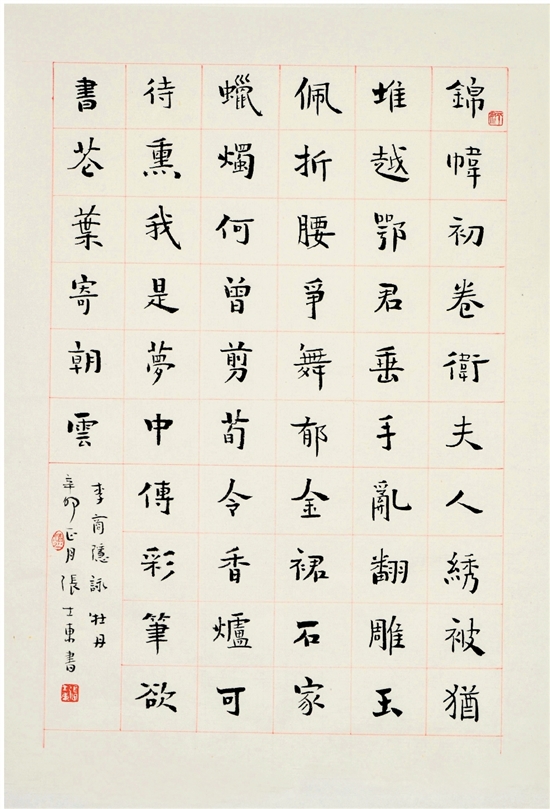 錦幃初卷衛夫人綉被猶
堆越鄂君垂手亂翻雕玉
佩折腰爭舞郁金裙石家
蠟燭何曾剪荀令香爐可
待熏我是夢中傳彩筆欲
書花葉寄朝雲
李商隱詠牡丹
辛卯正月張士東書